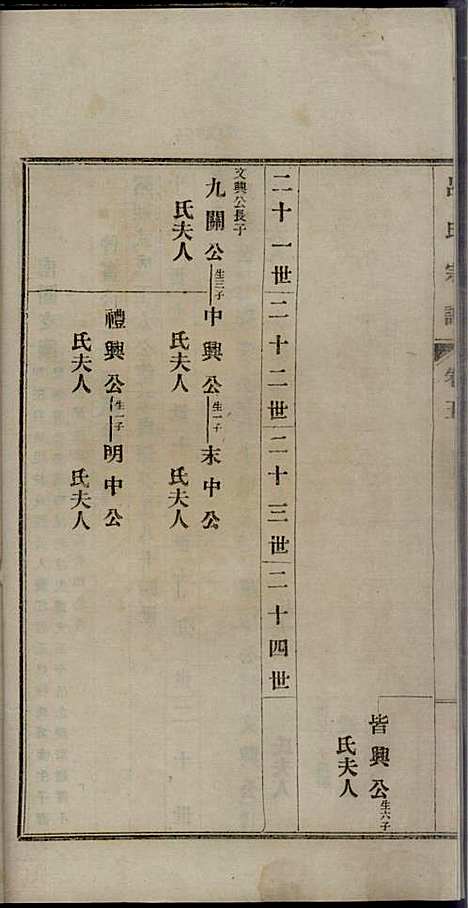 氏宗譜 卷五
皆興公生六子
氏夫人
二十一世 二十二世 二十三世 二十四世
文興公長子
九關公生三子 中興公生一子 末中公
氏夫人 氏夫人 氏夫人
禮興公生一子 明中公
氏夫人 氏夫人